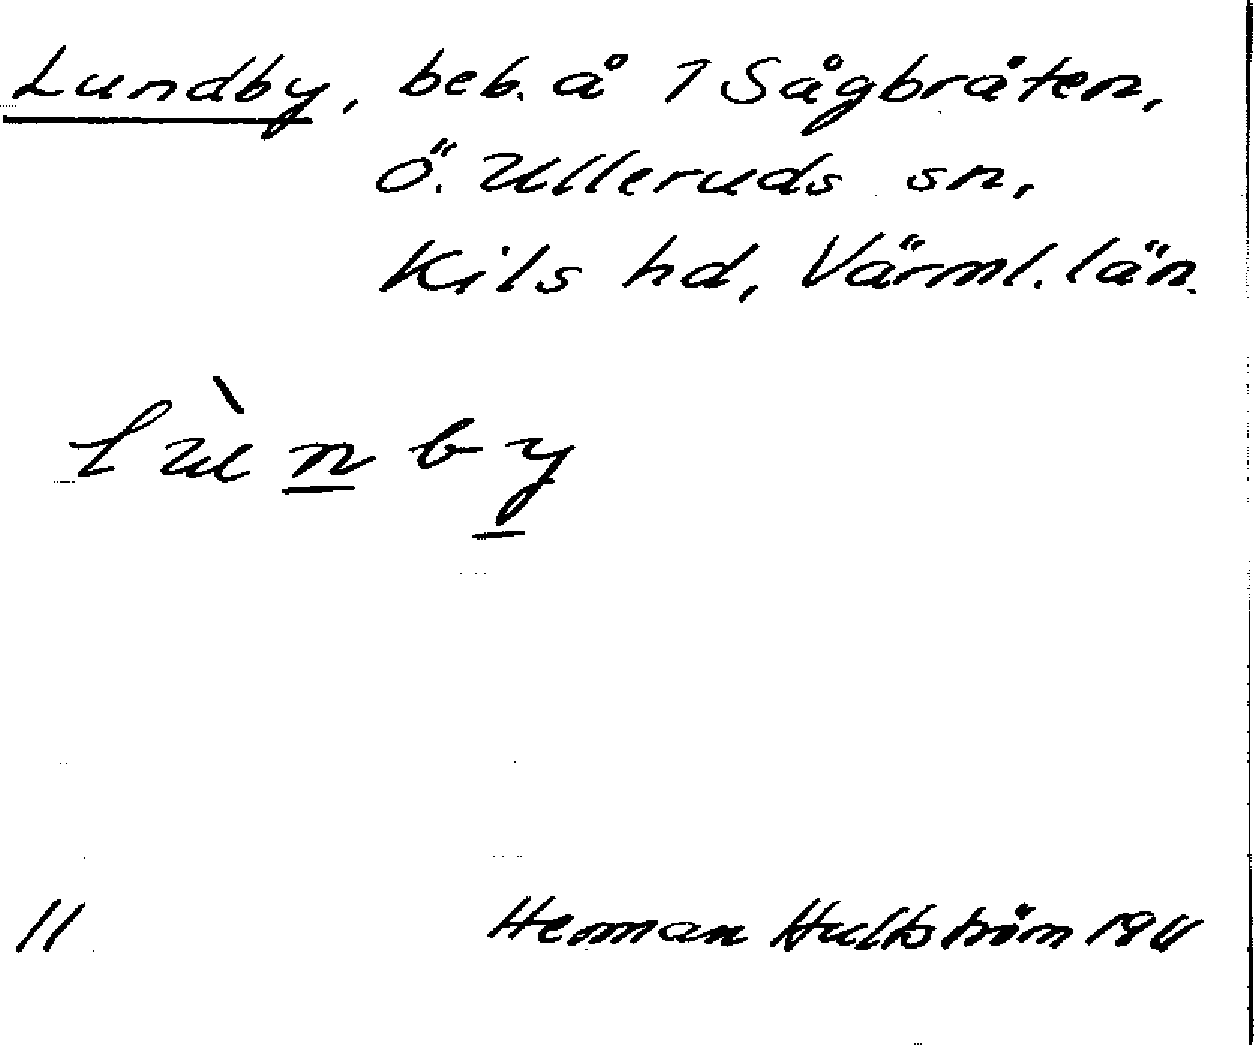 Lundby, beb. å 1 Sågbråten,
Ö. Ulleruds sn,
Kils hd, Värml. län.
lùnby
11 Herman Hultström